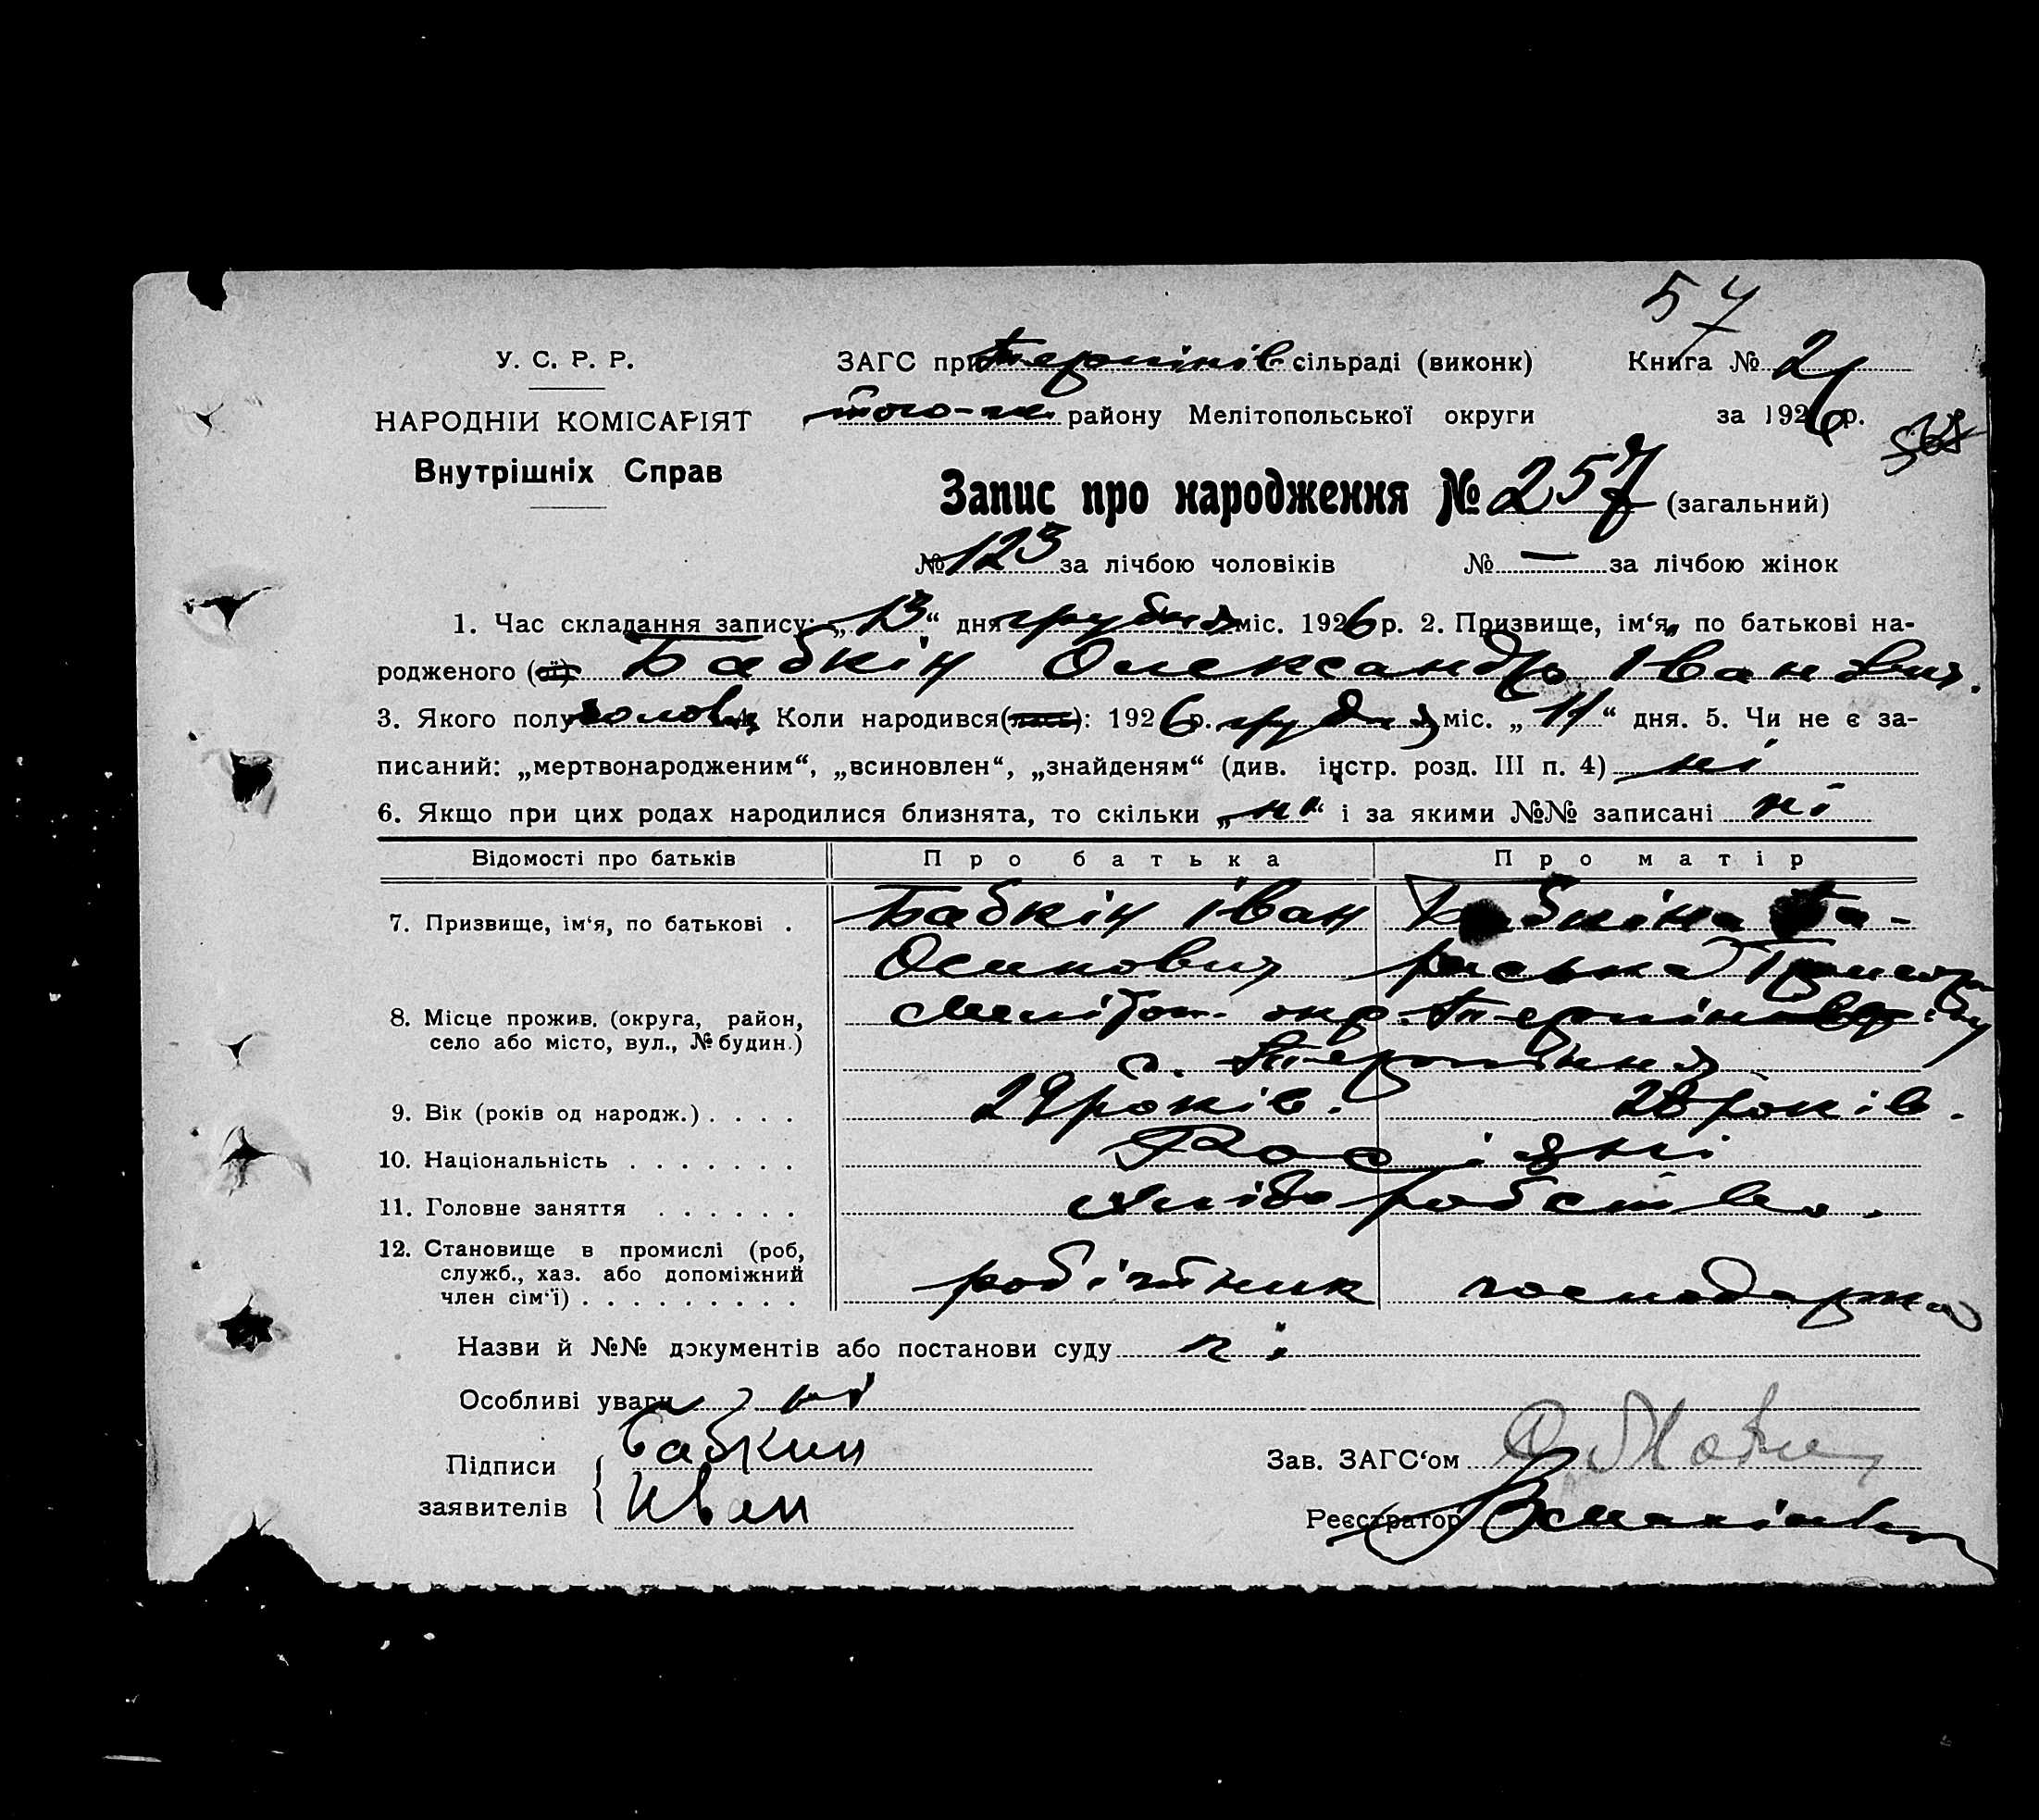 57
У. С. Р. Р. ЗАГС при Терпінів сільраді (виконк) Книга № 2
НАРОДНІЙ КОМІСАРІЯТ того-ж району Мелітопольської округи за 1926 р.
Внутрішніх Справ
Запис про народження № 257 (загальний)
№ 123 за лічбою чоловіків № — за лічбою жінок
1. Час складання запису: „13“ дня грудня міс. 1926 р. 2. Призвище, ім‘я, по батькові на-
родженого (ої) Бабкін Олександр Іванович.
3. Якого полу чолов. 4. Коли народився( ): 1926 р. грудня міс. „11“ дня. 5. Чи не є за-
писаний: „мертвонародженим“, „всиновлен“, „знайденям“ (див. інстр. розд. III п. 4) ні
6. Якщо при цих родах народилися близнята, то скільки „ні“ і за якими №№ записані ні
Відомості про батьків Про батька Про матір
7. Призвище, ім‘я, по батькові . Бабкін Іван Бабкіна Па-
Осипович раська Григор
8. Місце прожив. (округа, район, Меліtoп. окр. Терпінів
село або місто, вул., № будин.) с. Терпіння
9. Вік (років од народж.) . . . . 29 років. 28 років.
10. Національність . . . . . . . Росіяни
11. Головне заняття . . . . . . хліборобство.
12. Становище в промислі (роб,
служб., хаз. або допоміжний
член сім‘ї) . . . . . . . . . робітник господарка
Назви й №№ документів або постанови суду ні
Особливі уваги ні
Підписи Бабкин
заявителів Иван
Зав. ЗАГС‘ом
Реєстратор